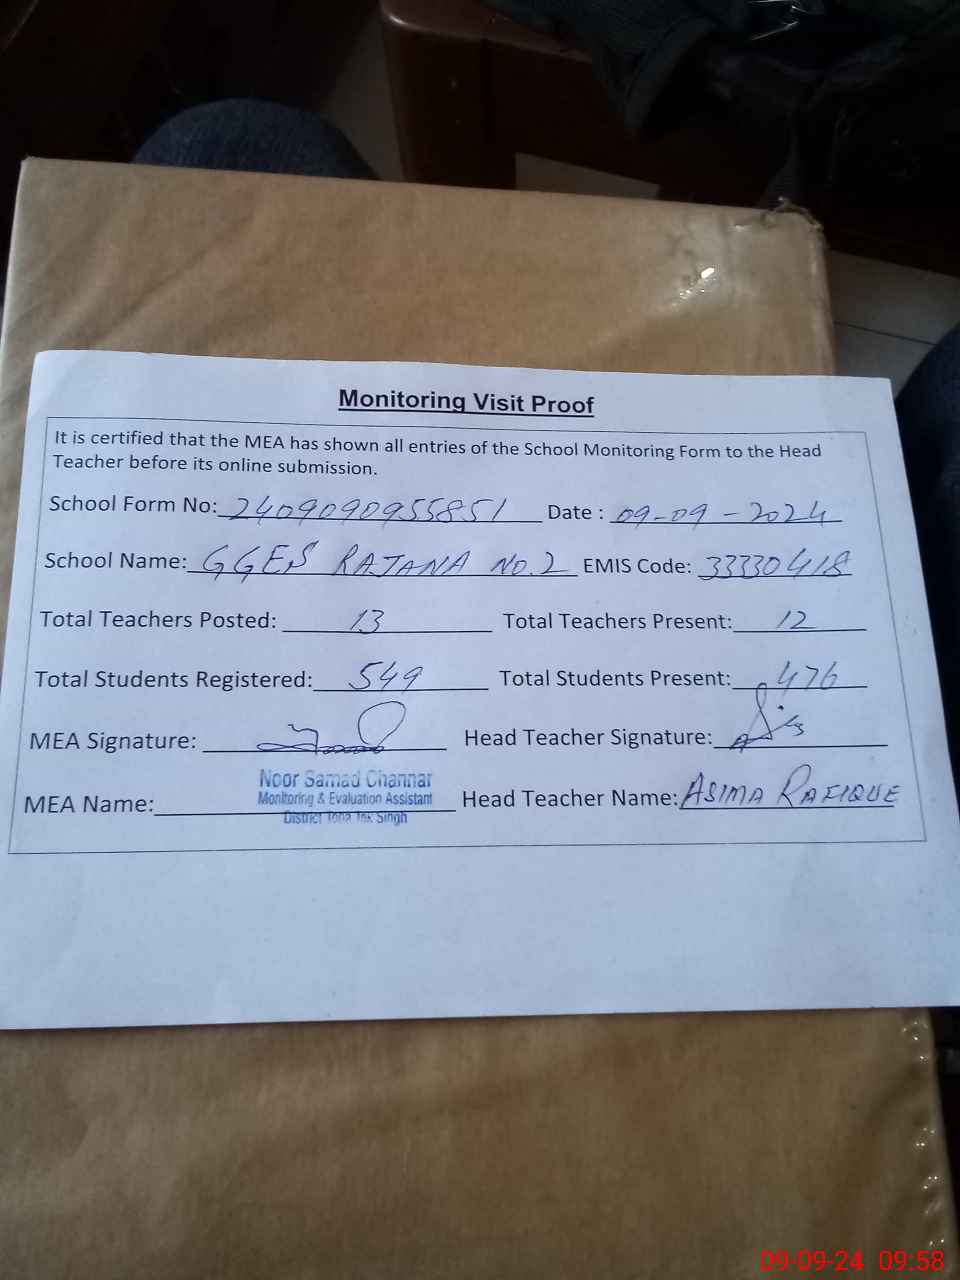 Monitoring Visit Proof
It is certified that the MEA has shown all entries of the School Monitoring Form to the Head
Teacher before its online submission.
School Form No: 2409090955851 Date : 09-09-2024
School Name: GGES RAJANA NO.2 EMIS Code: 33330418
Total Teachers Posted: 13 Total Teachers Present: 12
Total Students Registered: 549 Total Students Present: 476
MEA Signature: Head Teacher Signature:
Noor Samad Channar
Monitoring & Evaluation Assistant
MEA Name: Head Teacher Name: ASIMA RAFIQUE
District Toba Tek Singh
09-09-24 09:58